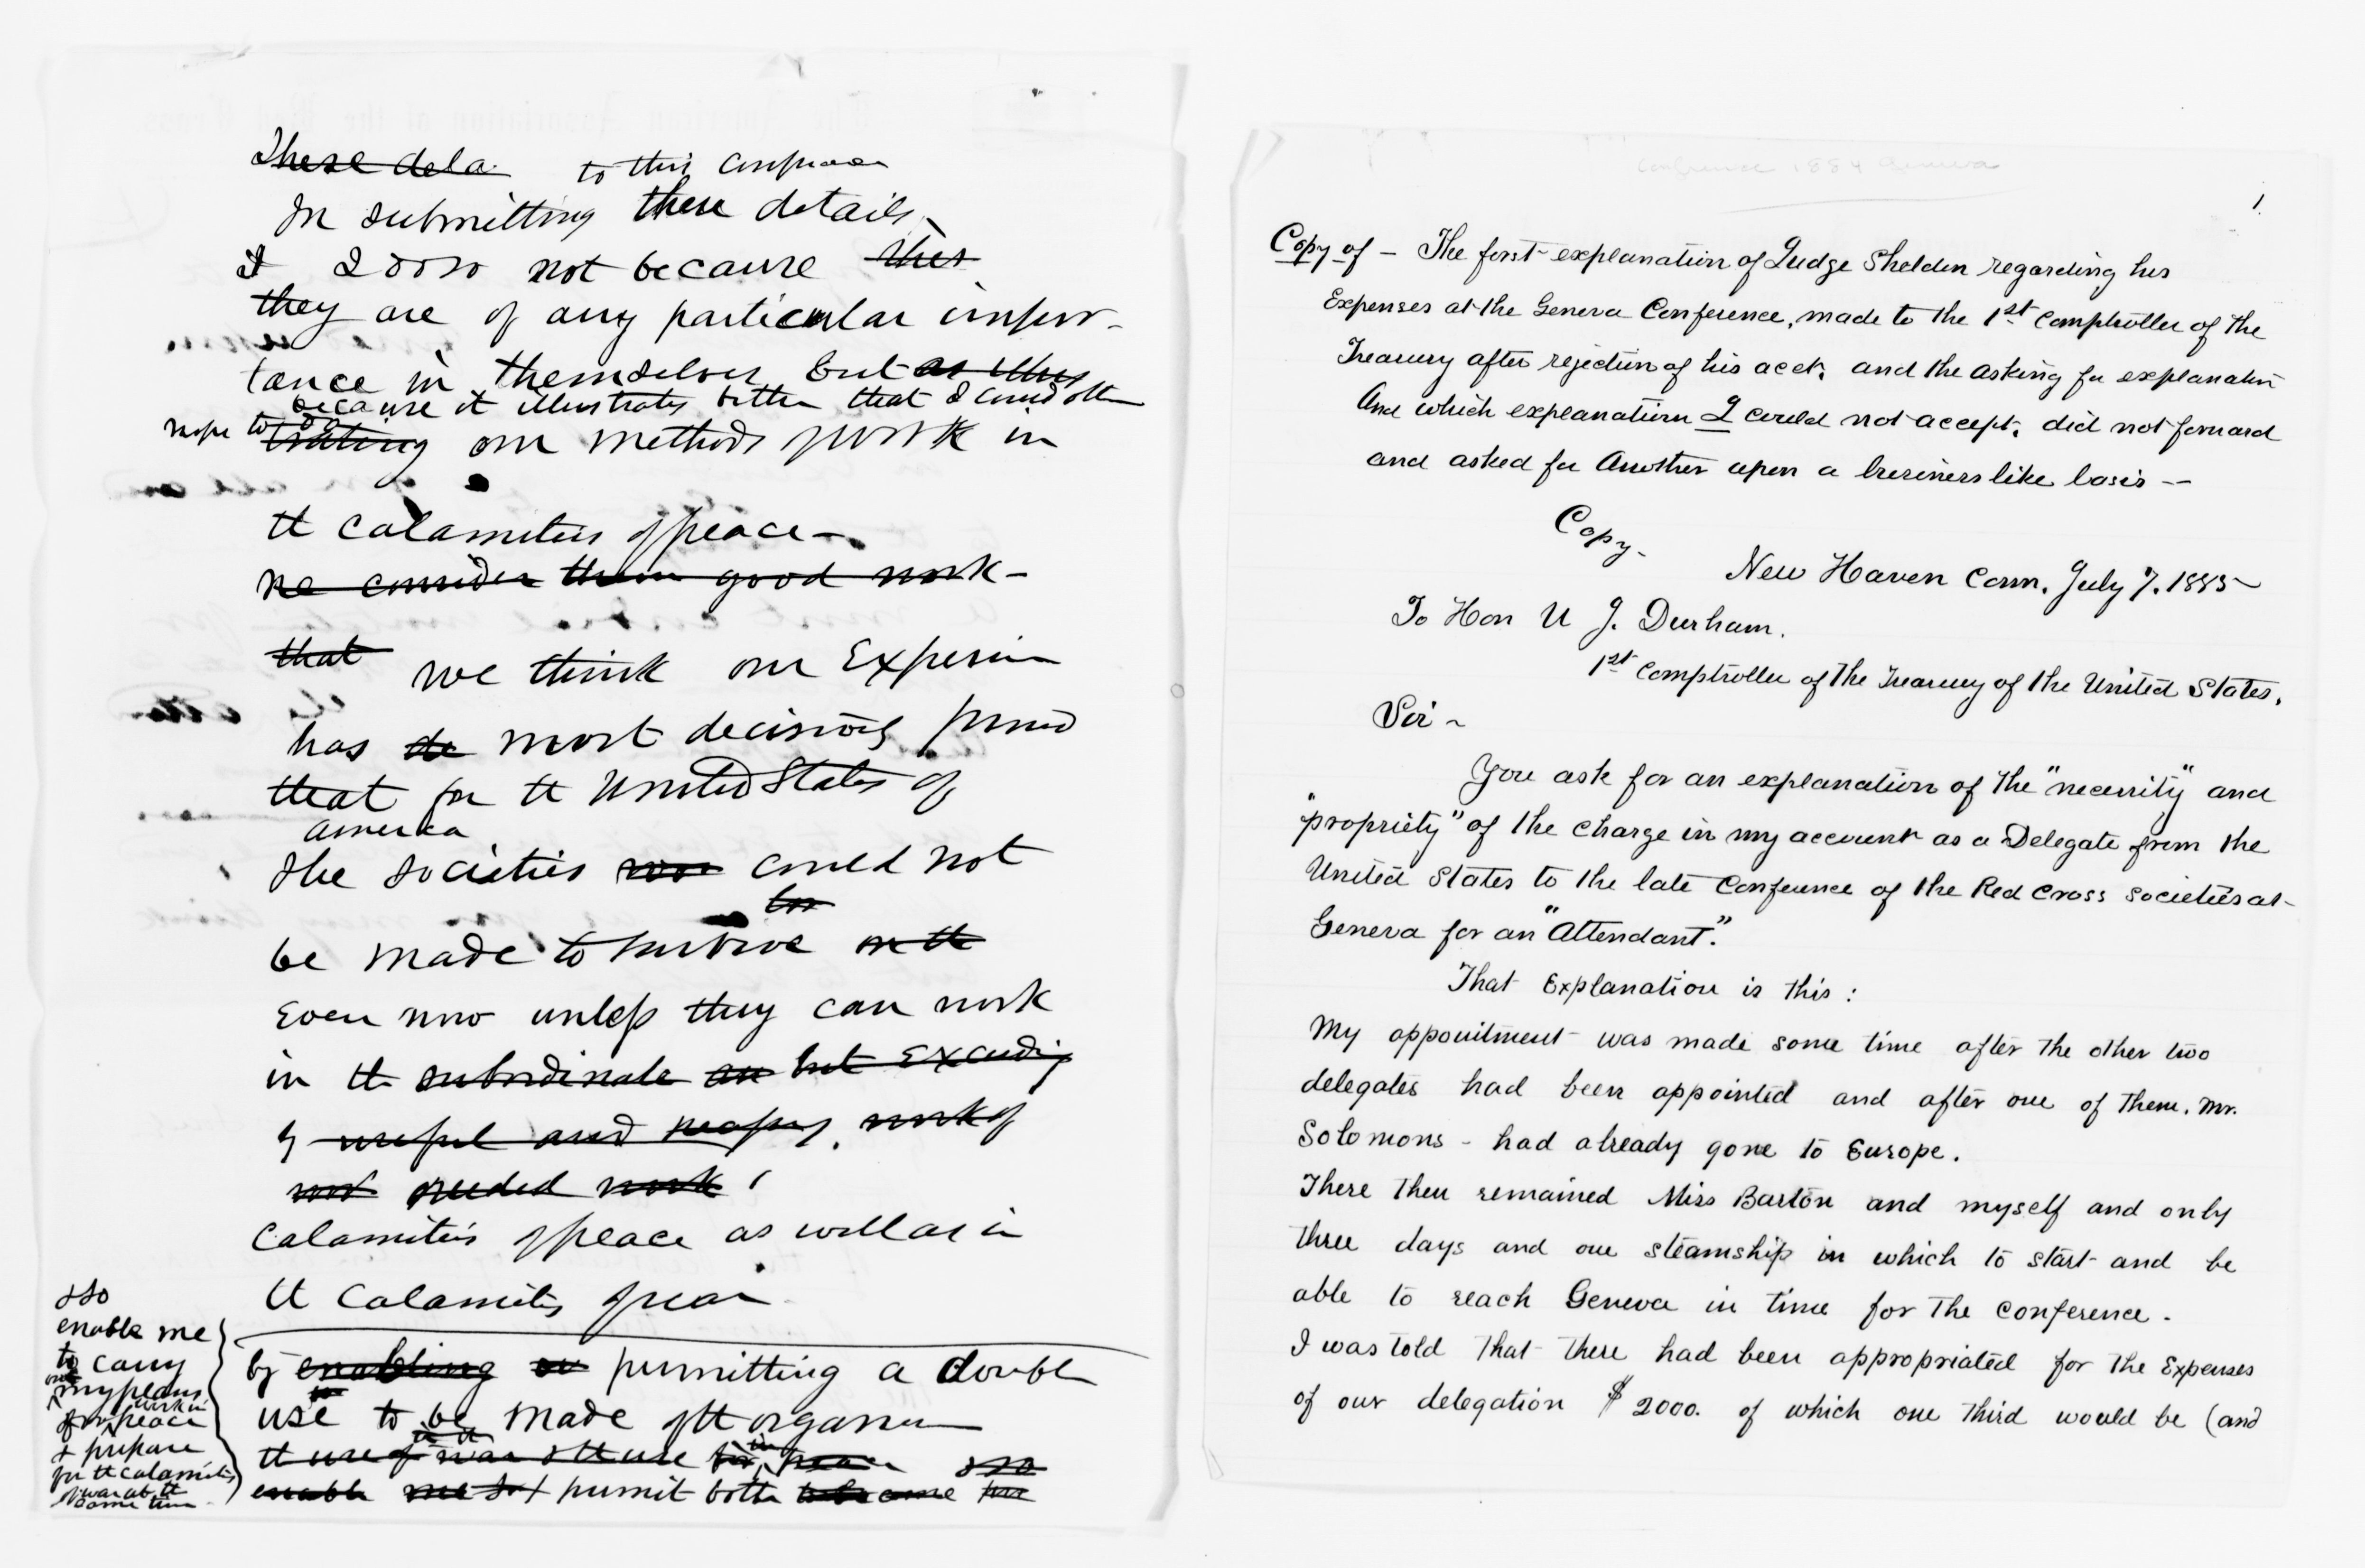 These deta
to this Conference
In submitting these details,
I do so not because this
they are of any particular impor-
tance in themselves but as illus
because it illustrates better that I could otherwise
hope to do
trating our methods work in
the calamities of peace—
we consider them good work—
that we think our Experience
has de most decisively proved
that for the United States of
America
the societies could not
be made to survive in the
Even now unless they can work
in the subordinate but Exceeding
ly useful and
not needed work
calamities of peace as well as in
the calamities of war
by enabling permitting a double
use to be made of the organ
the use of war & the use in peace & so
enable me to & permit both to become
& so
enable me
to carry
my plans
work in
peace
& prepare
for the calamities
of war at the
same time
Conference 1884 Geneva
1.
Copy of – The first explanation of Judge Sheldon regarding his
Expenses at the Geneva Conference, made to the 1st Comptroller of the
Treasury after rejection of his acct, and the asking for explanation
And which explanation I could not accept, did not forward
and asked for Another upon a business like basis --
Copy-
New Haven Conn. July 7. 1885–
To Hon U J. Durham.
1st Comptroller of the Treasury of the United States.
Sir ~
You ask for an explanation of the "necessity" and
"propriety" of the charge in my account as a Delegate from the
United States to the late Conference of the Red Cross Societies at-
Geneva for an "Attendant".
That Explanation is this:
My appointment was made some time after the other two
delegates had been appointed and after one of them. Mr.
Solomons - had already gone to Europe.
There then remained Miss Barton and myself and only
three days and one steamship in which to start and be
able to reach Geneva in time for the conference.
I was told that there had been appropriated for the Expenses
of our delegation $2000. of which one third would be (and